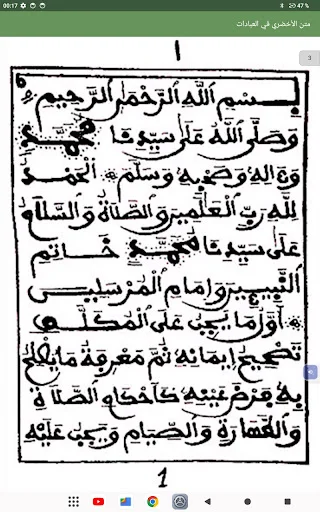 00:17
47%
متن الأخضري في العبادات
3
1
بسم الله الرحمن الرحيم
وصلى الله على سيدنا محمد
وءاله وصحبه وسلم الحمد
لله رب العالمين والصلاة والسلام
على سيدنا محمد خاتم
النبيين وإمام المرسلين
أول ما يجب على المكلف
تصحيح إيمانه ثم معرفة ما يصلح
به فرض عينه كأحكام الصلاة
والطهارة والصيام ويجب عليه
1